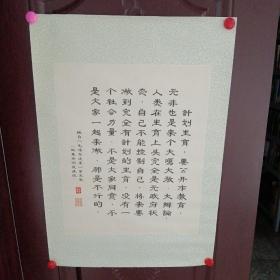 計劃生育，要公开作教育
无非也是来个大鳴大放、大辯論
人类在生育上头完全是无政府状
态，自己不能控制自己。将来要
做到完全有計划的生育，没有一
个社会力量，不是大家同意，不
是大家一起来做，那是不行的。